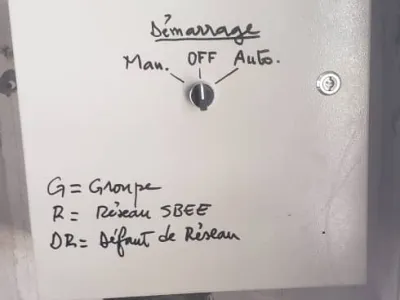 Démarrage
Man. OFF Auto.
G = Groupe
R = Réseau SBEE
DR = Défaut de Réseau